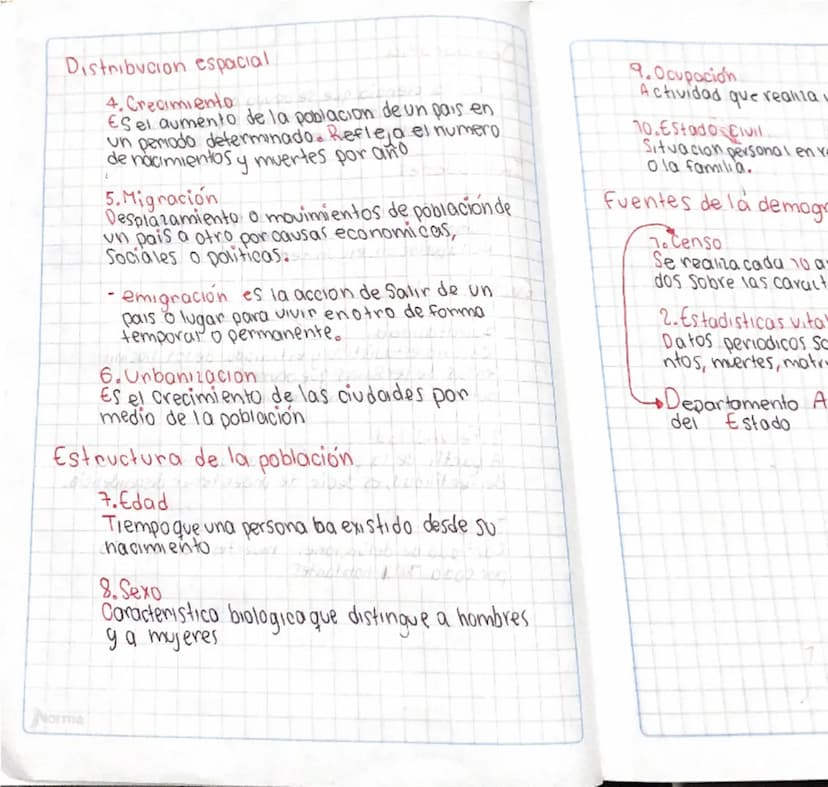 Distribucion espacial
4. Crecimiento
Es el aumento de la poblacion de un pais en
un periodo determinado. Refleja el numero
de nacimientos y muertes por año
5. Migración
Desplazamiento o movimientos de población de
un pais a otro por causas economicas,
sociales o politicas.
- emigración es la accion de salir de un
pais o lugar para vivir en otro de forma
temporal o permanente.
6. Urbanizacion
Es el crecimiento de las ciudades por
medio de la población
Estructura de la población
7. Edad
Tiempo que una persona ha existido desde su
nacimiento
8. Sexo
Caracteristica biologica que distingue a hombres
y a mujeres
Norma
9. Ocupación
Actividad que realiza
10. Estado Civil
Situacion personal en
o la familia.
Fuentes de la demogr
1. Censo
Se realiza cada 10 a
dos sobre las caract
2. Estadisticas vital
Datos periodicos so
ntos, muertes, matri
Departamento A
del Estado